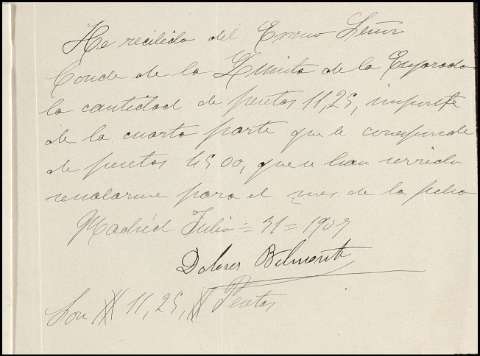 He recibido del Exmo Señor
Conde de la Quinta de la Enjarada
la cantidad de pesetas 11,25, importe
de la cuarta parte que le corresponde
de pesetas 45,00, que se han servido
señalarme para el mes de la fecha
Madrid Julio = 31 = 1909
Dolores Belmonte
Son # 11,25, # Pesetas